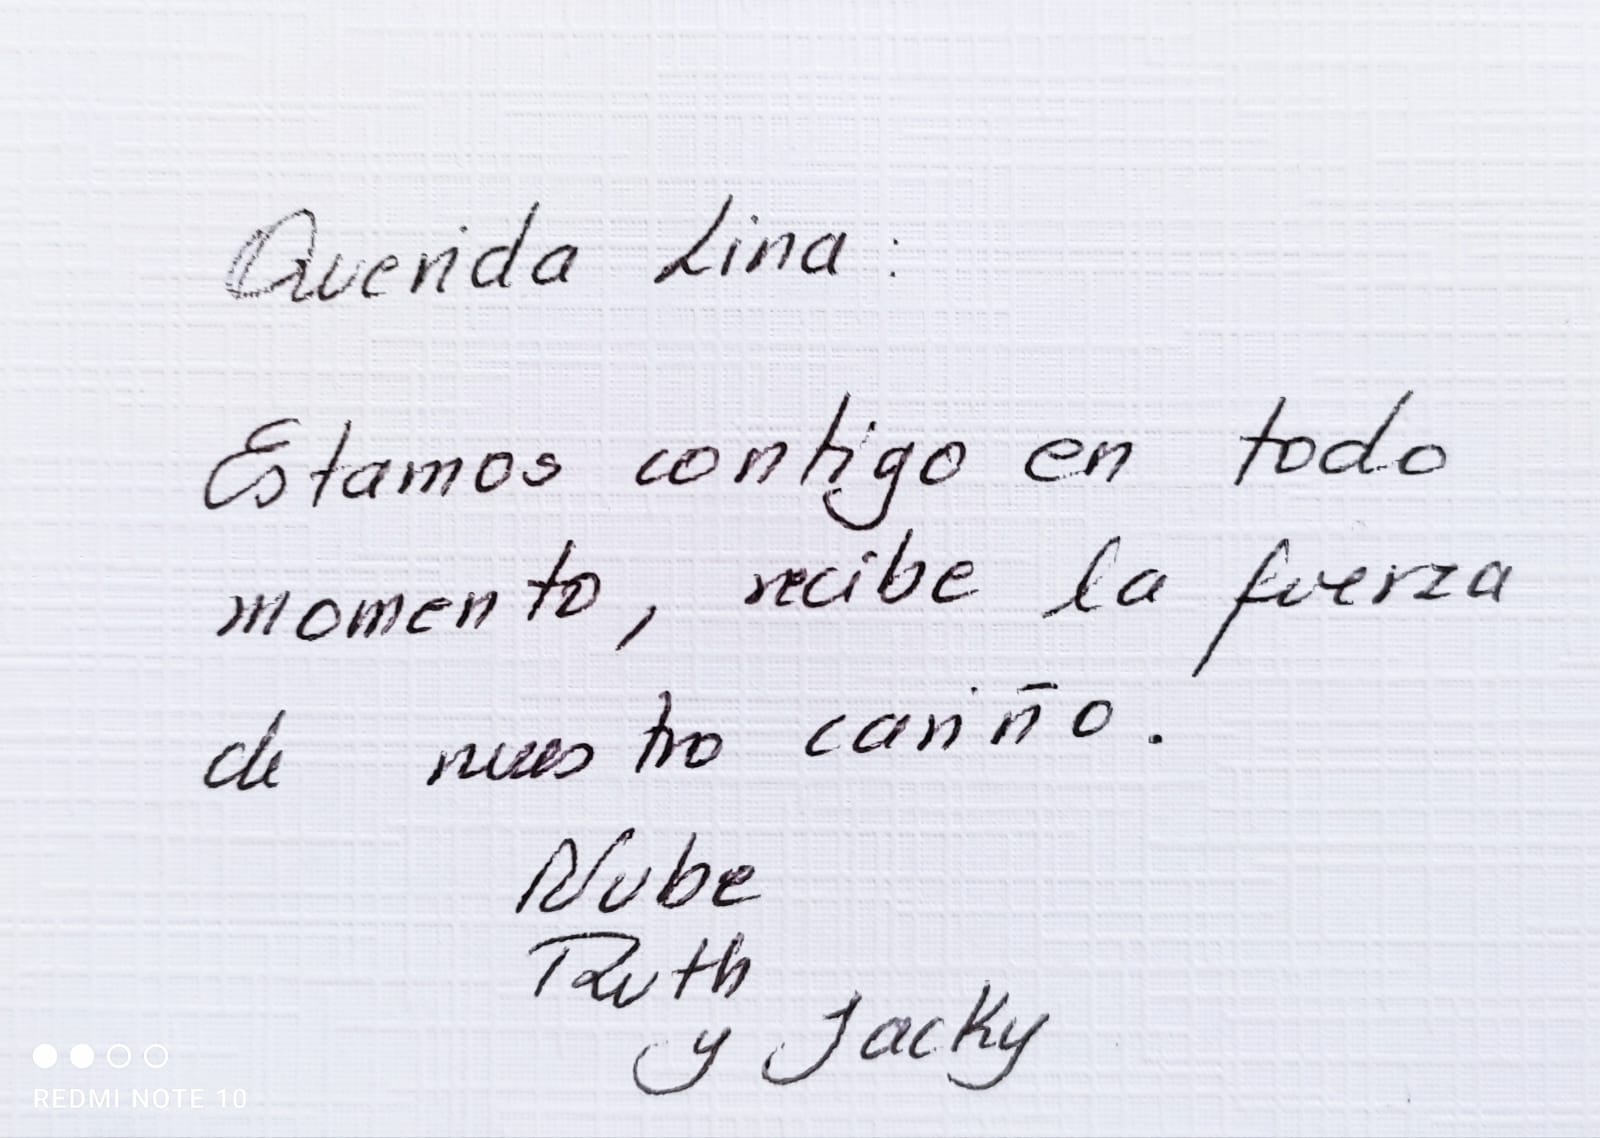 Querida Lina:
Estamos contigo en todo
momento, recibe la fuerza
de nuestro cariño.
Nube
Ruth
y Jacky
REDMI NOTE 10